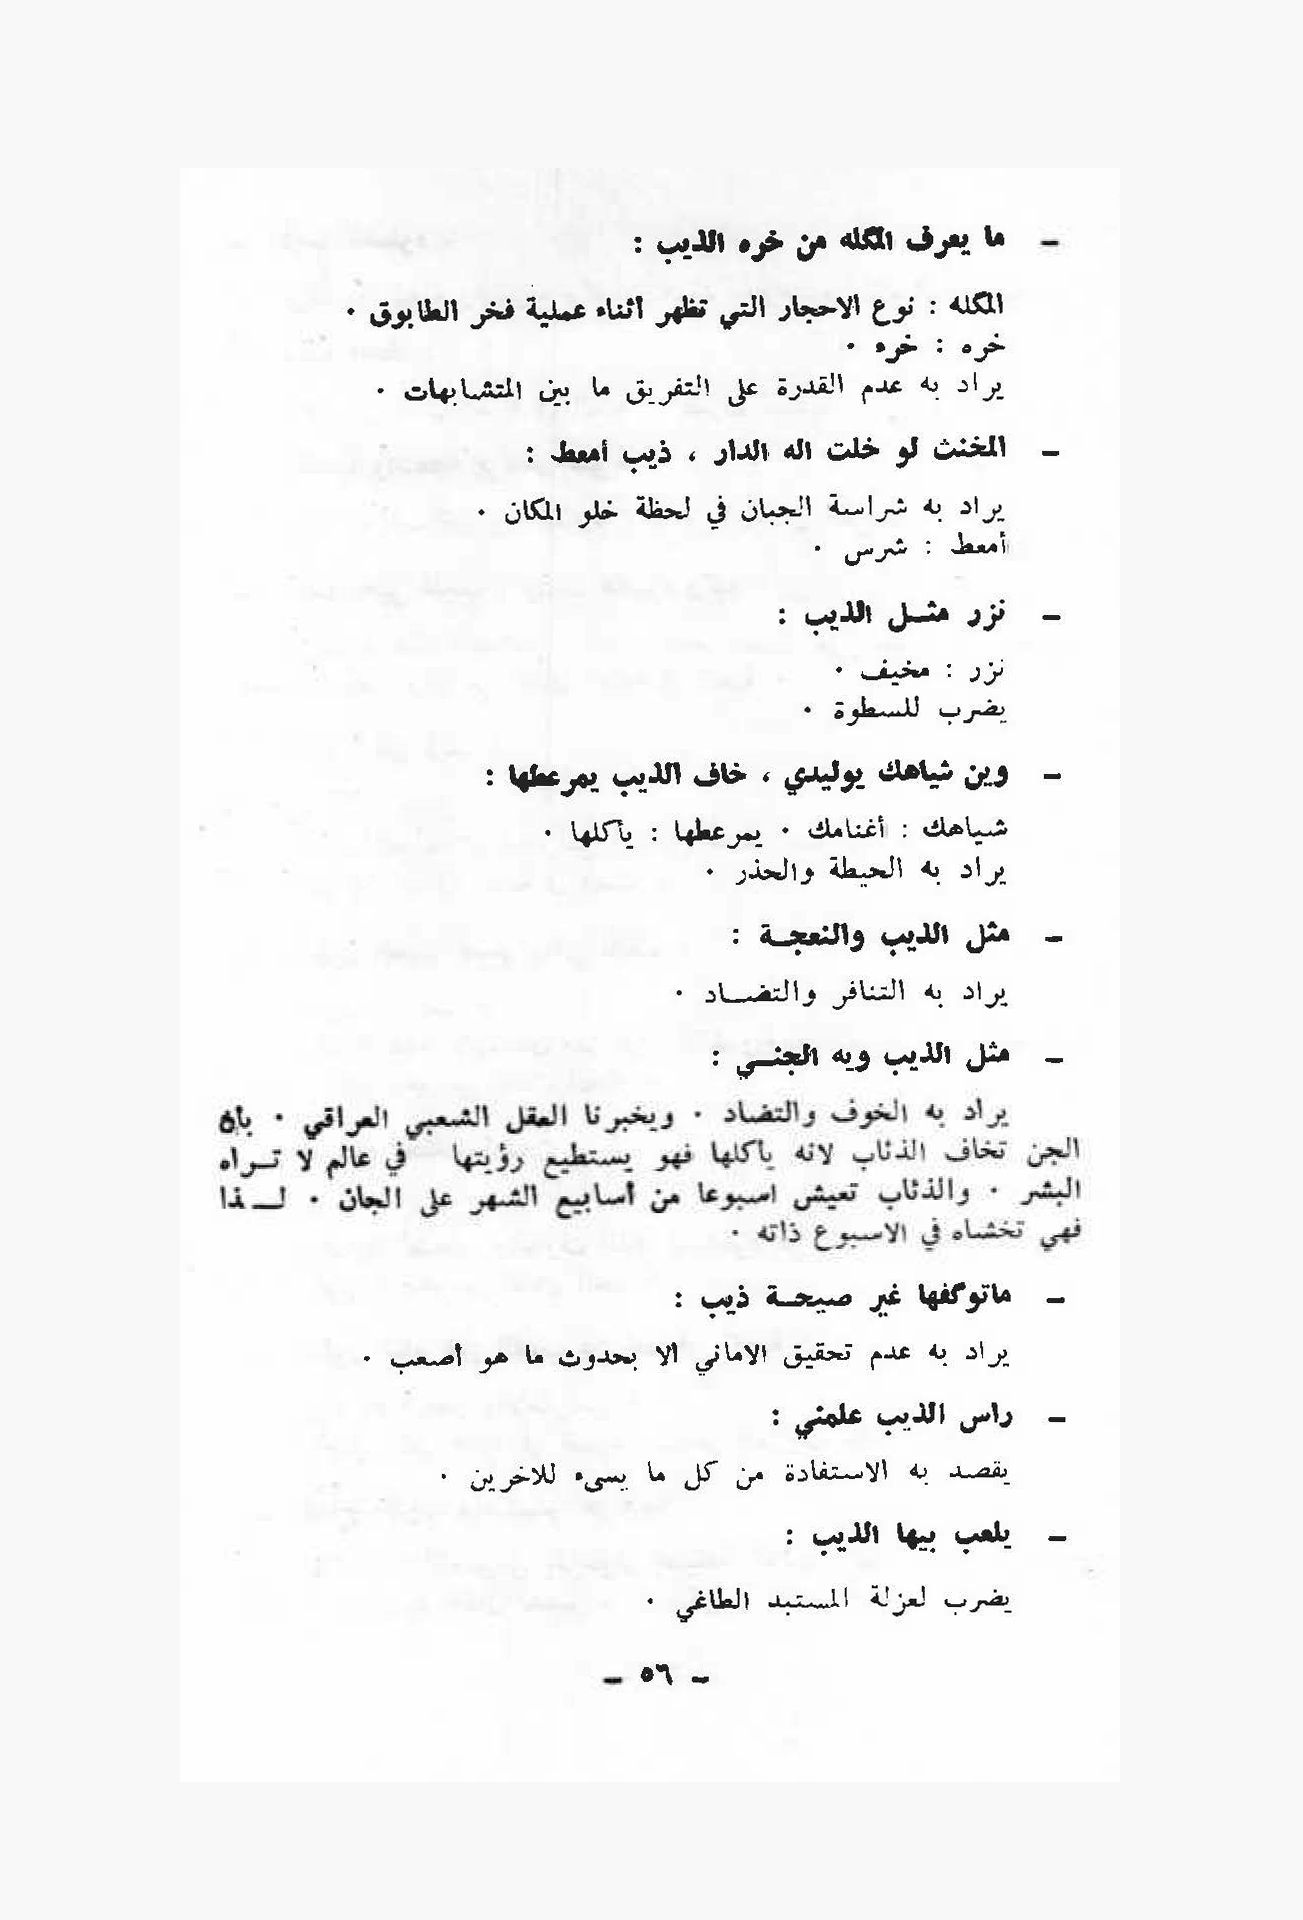 ــ ما يعرف المگله من خره الذيب :
المگله : نوع الاحجار التي تظهر أثناء عملية فخر الطابوق ٠
خره : خرء ٠
يراد به عدم القدرة على التفريق ما بين المتشابهات ٠
ــ المخنث لو خلت اله الدار ، ذيب أمعط :
يراد به شراسة الجبان في لحظة خلو المكان ٠
أمعط : شرس ٠
ــ نزر مثــل الذيب :
نزر : مخيف ٠
يضرب للسطوة ٠
ــ وين شياهك يوليدي ، خاف الذيب يمرعطها :
شياهك : أغنامك ٠ يمرعطها : يأكلها ٠
يراد به الحيطة والحذر ٠
ــ مثل الذيب والنعجــة :
يراد به التنافر والتضــاد ٠
ــ مثل الذيب ويه الجنــي :
يراد به الخوف والتضاد ٠ ويخبرنا العقل الشعبي العراقي ٠ بأن
الجن تخاف الذئاب لانه يأكلها فهو يستطيع رؤيتها في عالم لا تــراه
البشر ٠ والذئاب تعيش اسبوعا من أسابيع الشهر على الجان ٠ لــذا
فهي تخشاه في الاسبوع ذاته ٠
ــ ماتوگفها غير صيحــة ذيب :
يراد به عدم تحقيق الاماني ألا بحدوث ما هو أصعب ٠
ــ راس الذيب علمني :
يقصد به الاستفادة من كل ما يسىء للاخرين ٠
ــ يلعب بيها الذيب :
يضرب لعزلة المستبد الطاغي ٠
ــ ٥٦ ــ